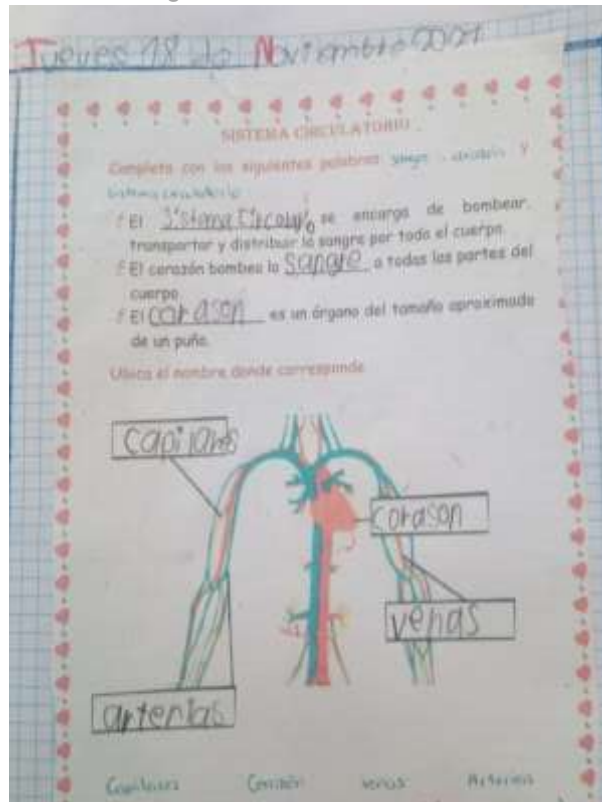 Jueves 18 de Noviembre 2021
SISTEMA CIRCULATORIO
Completa con las siguientes palabras sangre, corazón y
sistema circulatorio
El Sistema Circulario se encarga de bombear,
transportar y distribuir la sangre por todo el cuerpo.
El corazón bombea la sangre a todas las partes del
cuerpo
El corason es un órgano del tamaño aproximado
de un puño.
Ubica el nombre donde corresponda
capilares
corason
venas
arterias
Capilares Corazón venas Arterias